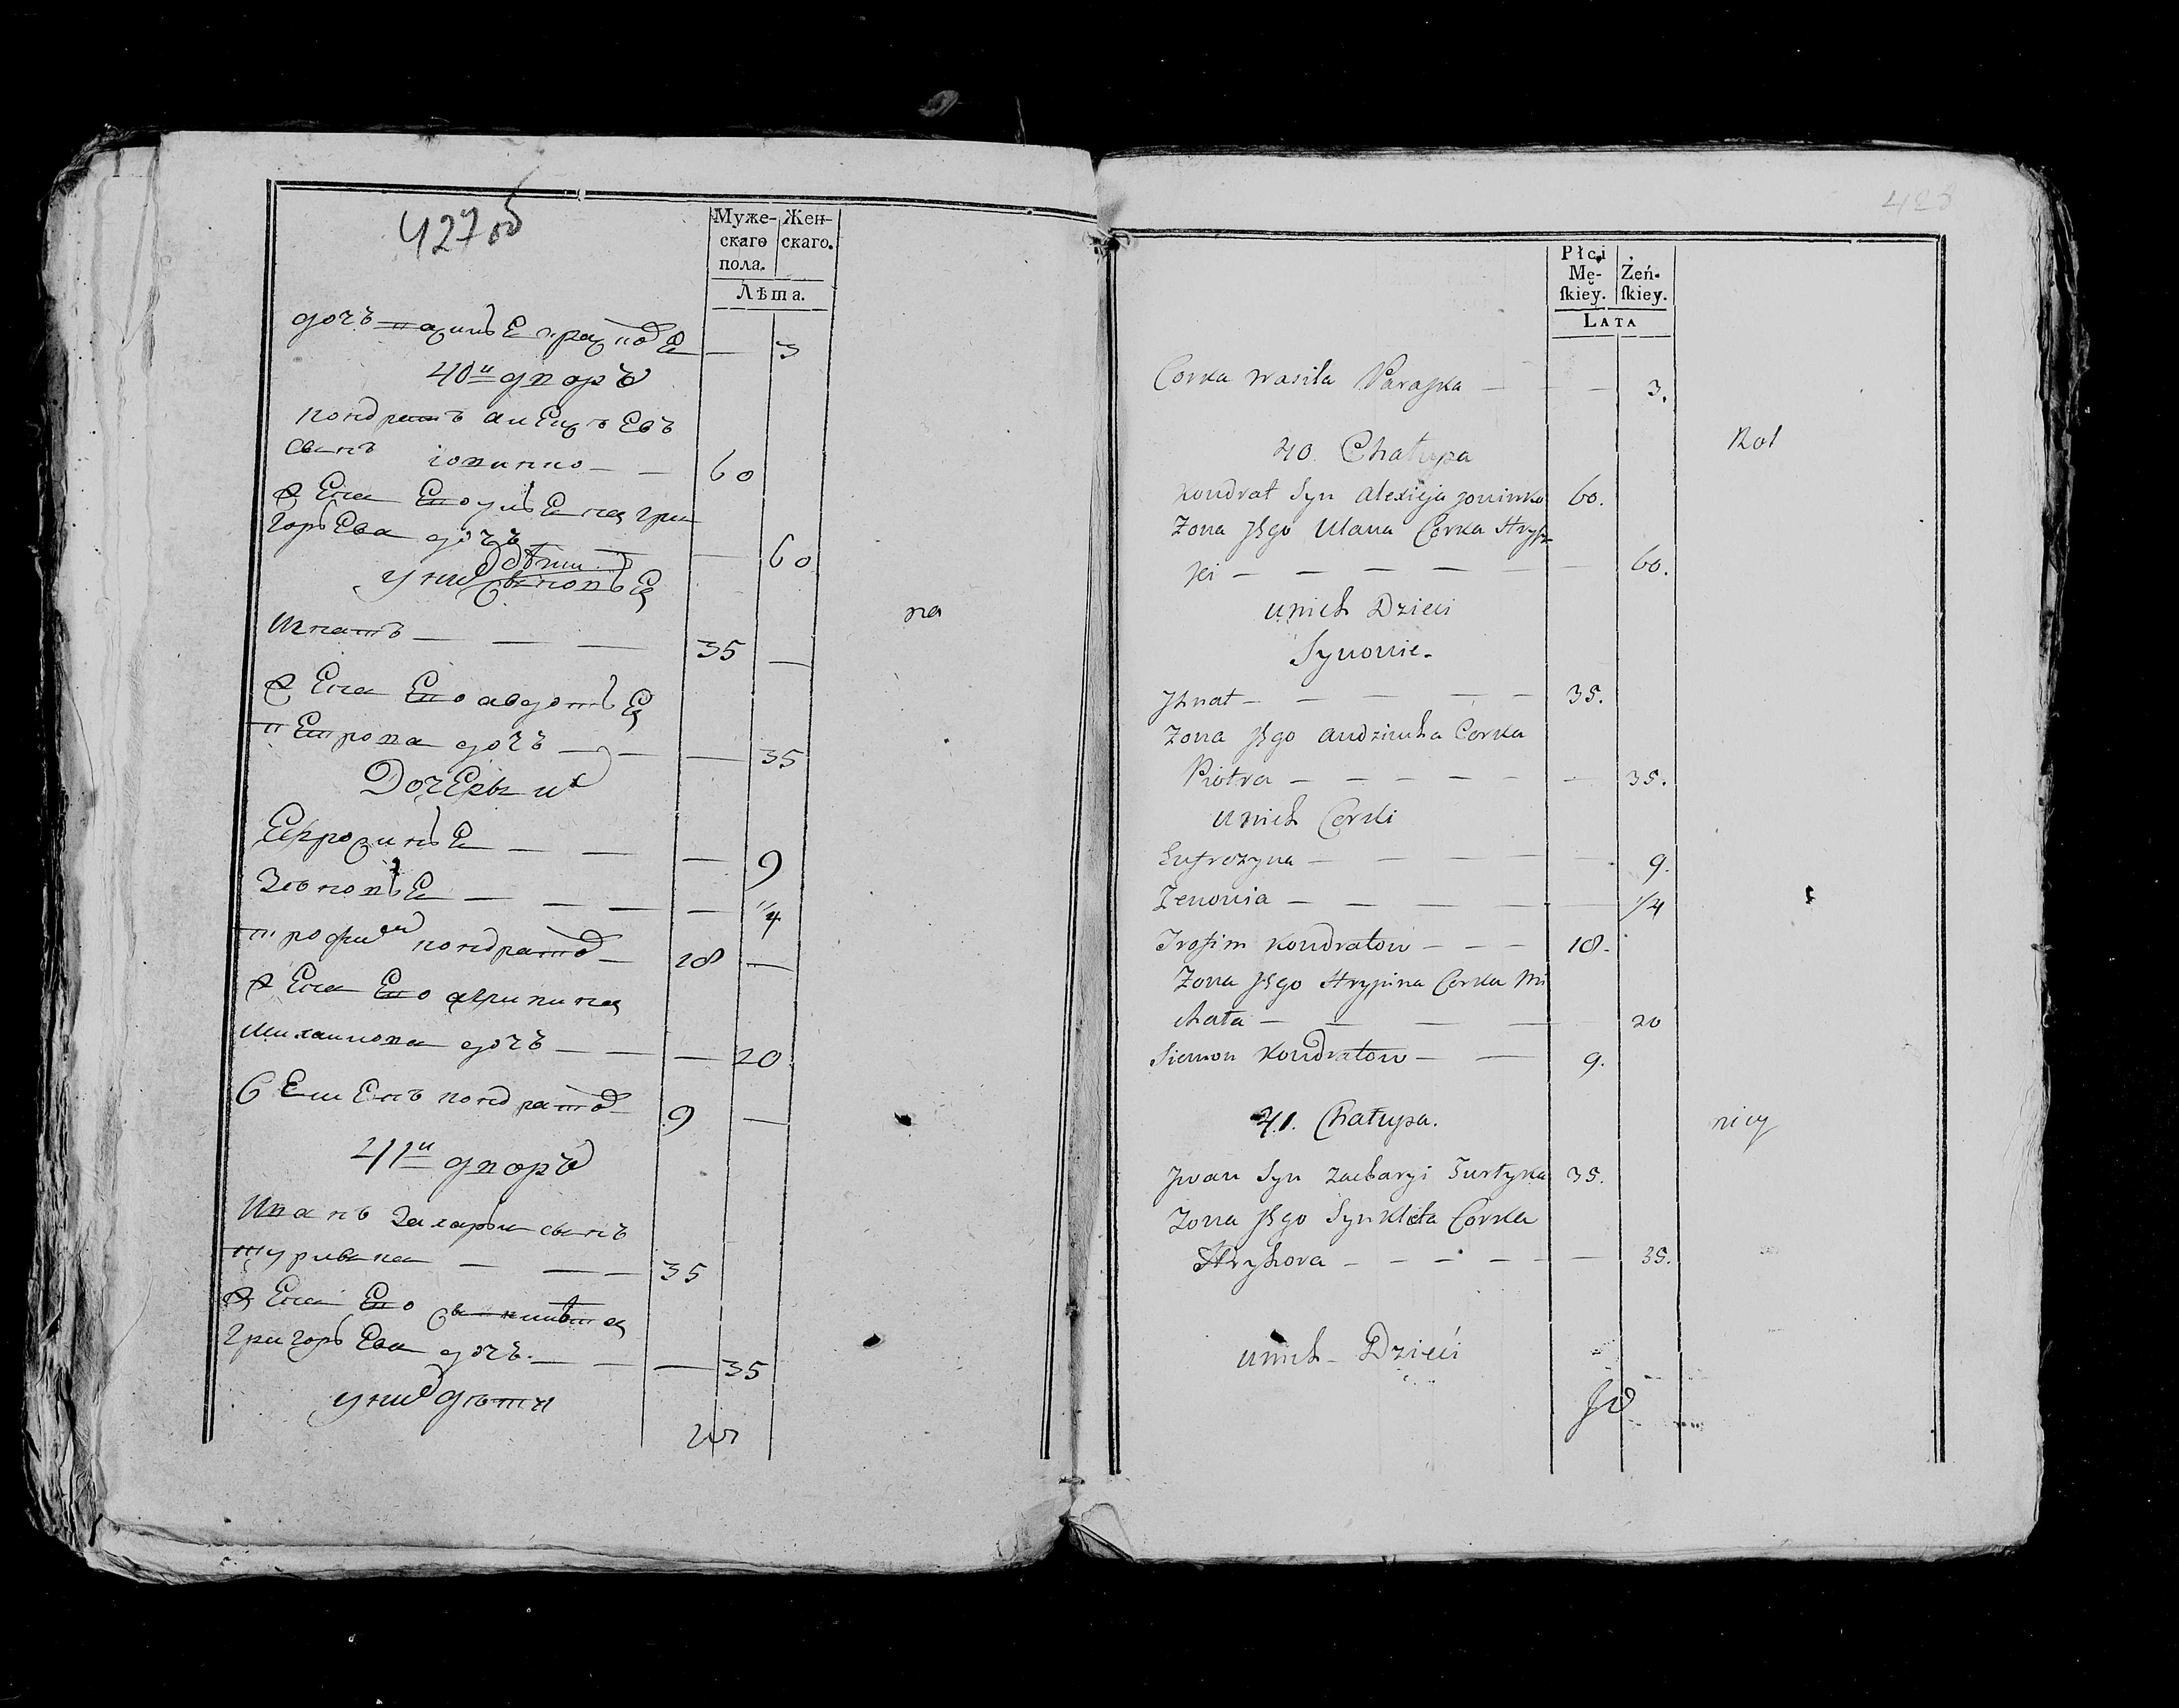 427 об
Муже- Жен-
скаго скаго.
пола.
Лѣта.
дочь 3
40й дворъ
Кондратъ Алексѣевъ
сынъ 60
Жена Его Ульяна Гри
горьева дочь 60
у них дѣти
Сыновья
Игнатъ 35
на
Жена Его Авдотья
Петрова дочь 35
Дочери их
Ефрозинья 9
Зеновья 1/4
Трофим Кондратов 18
Жена Его Агрипина
Михайлова дочь 20
Семенъ Кондратов 9
41й дворъ
Иванъ Захарьи сынъ
Туртыка 35
Жена Его Сынклѣта
Григорьева дочь 35
у них дѣти
428
Płci
Mę- Żeń-
skiey. skiey.
LATA
Corka Wasila Paraska 3.
40. Chałupa
Rol
Kondrat Syn Alexieja 60.
Zona Jego Ulana Corka Hryho
rei 60.
u nich Dzieci
Synowie
Jhnat 35.
Zona Jego Audziuha Corka
Piotra 35.
u nich Corki
Eufrozyna 9.
Zenowia 1/4
Trofim Kondratow 18.
Zona Jego Hrypina Corka Mi
chała 20
Siemon Kondratow 9.
41. Chałupa.
nicy
Jwan Syn Zacharyi Turtyka 35.
Zona Jego Synkleta Corka
Hryhora 35.
u nich Dzieci